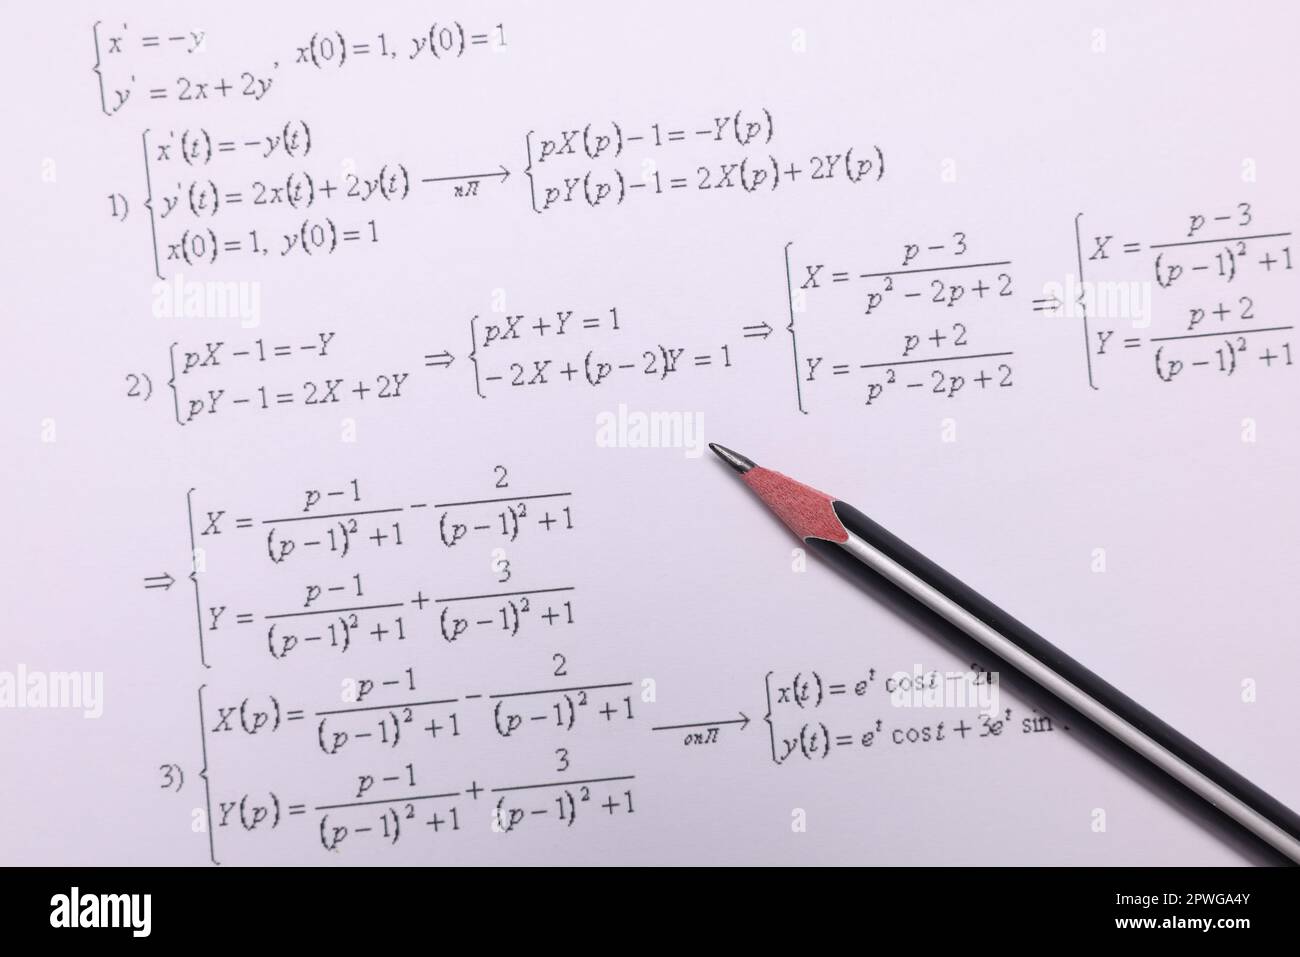 x' = -y
y' = 2x + 2y , x(0) = 1, y(0) = 1
1) x'(t) = -y(t)
y'(t) = 2x(t) + 2y(t)
x(0) = 1, y(0) = 1
пЛ
pX(p) - 1 = -Y(p)
pY(p) - 1 = 2X(p) + 2Y(p)
2) pX - 1 = -Y
pY - 1 = 2X + 2Y
⇒ pX + Y = 1
-2X + (p - 2)Y = 1
⇒ X = (p - 3) / (p² - 2p + 2)
Y = (p + 2) / (p² - 2p + 2)
⇒ X = (p - 3) / ((p - 1)² + 1)
Y = (p + 2) / ((p - 1)² + 1)
⇒ X = (p - 1) / ((p - 1)² + 1) - 2 / ((p - 1)² + 1)
Y = (p - 1) / ((p - 1)² + 1) + 3 / ((p - 1)² + 1)
3) X(p) = (p - 1) / ((p - 1)² + 1) - 2 / ((p - 1)² + 1)
Y(p) = (p - 1) / ((p - 1)² + 1) + 3 / ((p - 1)² + 1)
опЛ
x(t) = e^t cos t - 2e
y(t) = e^t cos t + 3e^t sin
alamy
alamy
alamy
alamy
alamy
Image ID: 2PWGA4Y
www.alamy.com